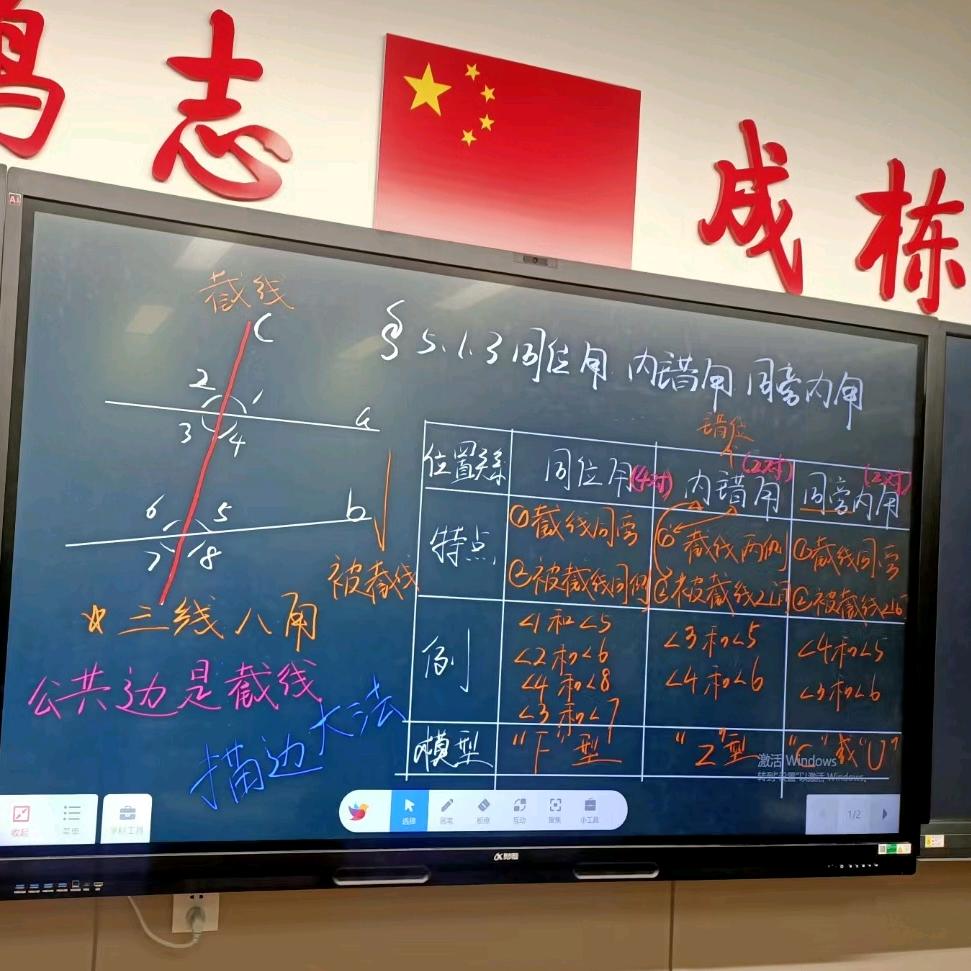 鸿志 成栋
截线
c
§5.1.3 同位角 内错角 同旁内角
2 1
a
3 4
6 5
b
7 8
被截线
☆三线八角
公共边是截线
描边大法
错位
位置关系 同位角(4对) 内错角(2对) 同旁内角(2对)
特点 ①截线同旁 ①截线两侧 ①截线同旁
②被截线同侧 ②被截线之间 ②被截线之间
例 <1和<5 <3和<5 <4和<5
<2和<6 <4和<6 <3和<6
<4和<8
<3和<7
模型 "F"型 "Z"型 "C"或"U"
激活 Windows
转到"设置"以激活 Windows。
收起 菜单 学科工具
选择 画笔 板擦 互动 聚焦 小工具
1/2